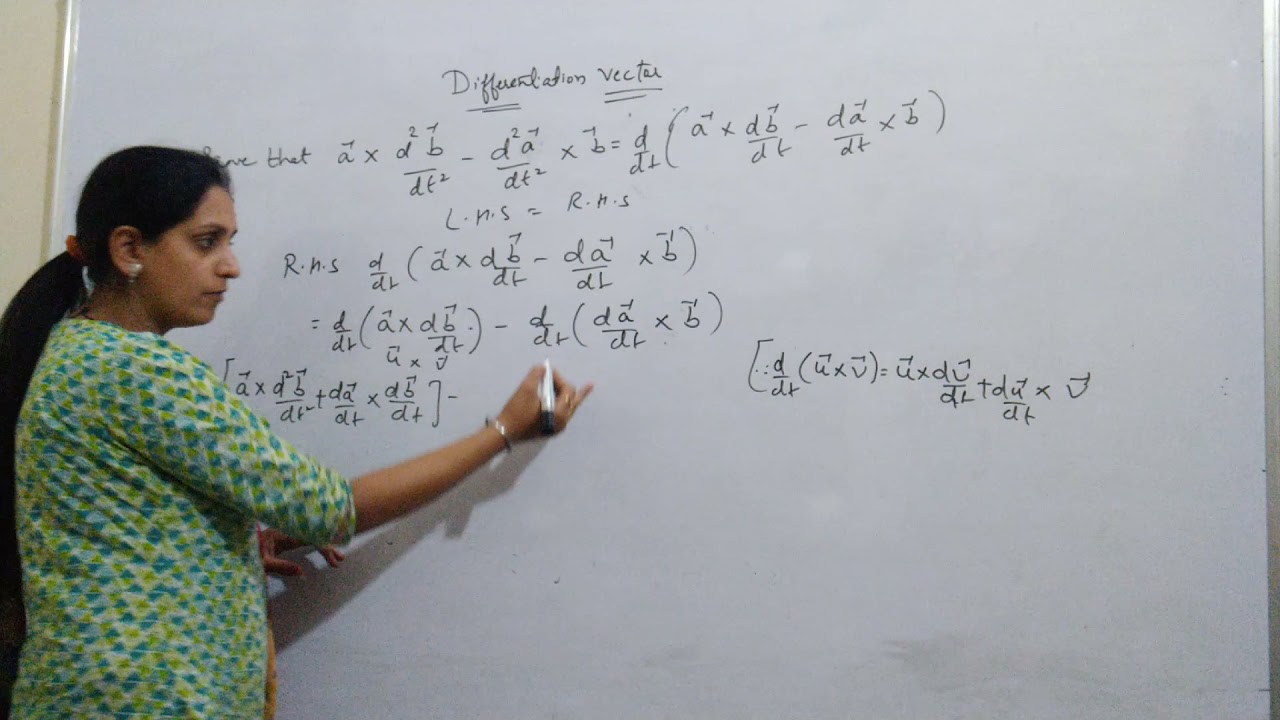 Differentiation vector
that a⃗ × d²b⃗/dt² - d²a⃗/dt² × b⃗ = d/dt (a⃗ × db⃗/dt - da⃗/dt × b⃗)
L.H.S = R.H.S
R.H.S d/dt (a⃗ × db⃗/dt - da⃗/dt × b⃗)
= d/dt (a⃗ × db⃗/dt) - d/dt (da⃗/dt × b⃗)
u⃗ × v⃗
[a⃗ × d²b⃗/dt² + da⃗/dt × db⃗/dt] -
[∵ d/dt (u⃗ × v⃗) = u⃗ × dv⃗/dt + du⃗/dt × v⃗